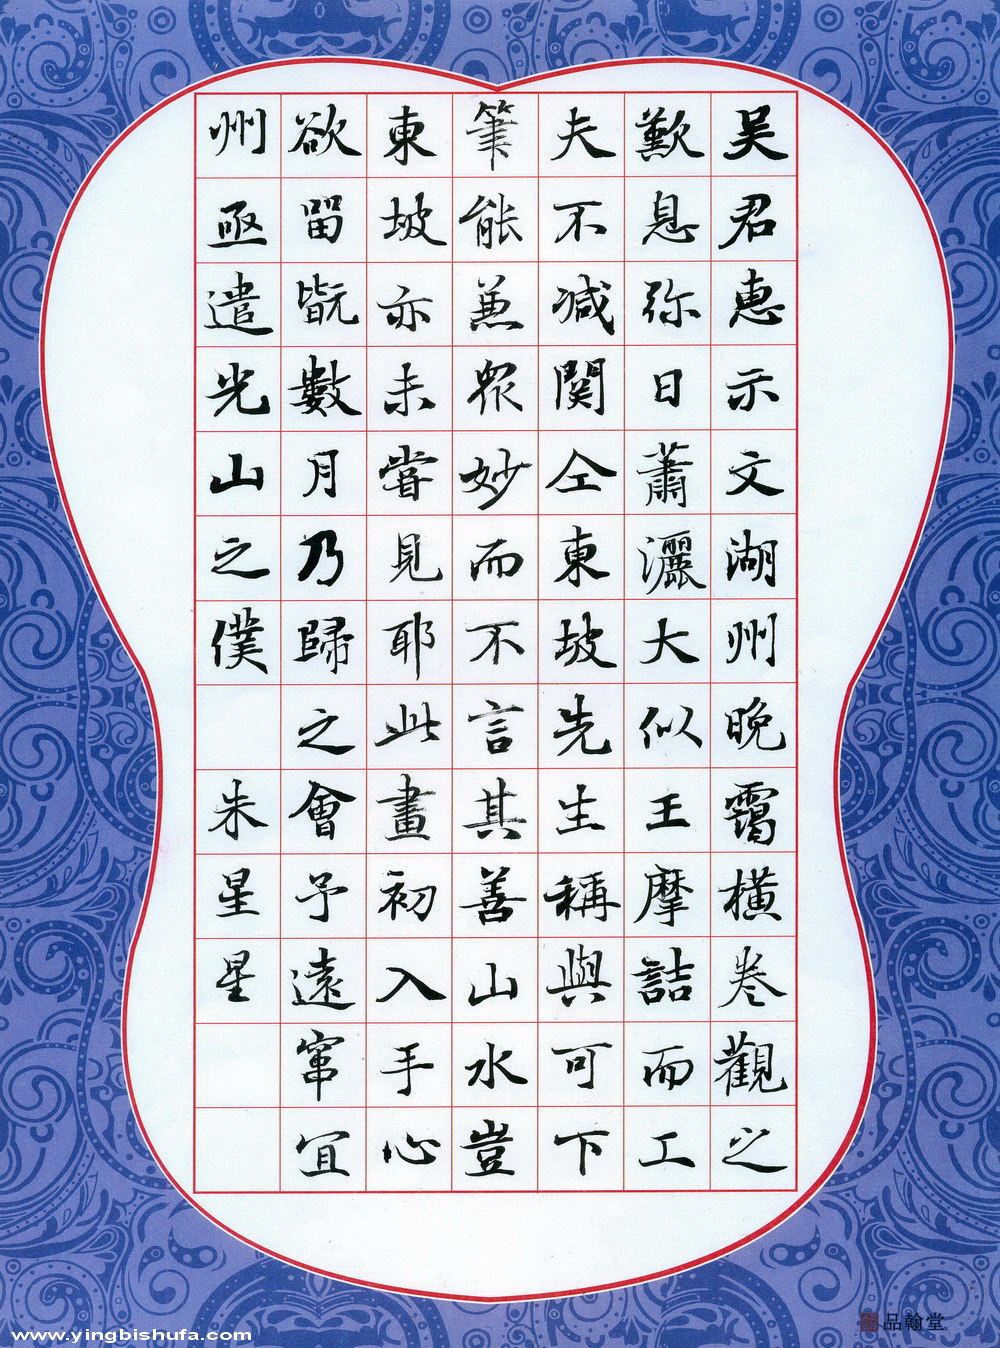 吴君惠示文湖州晚靄横卷觀之
歎息弥日蕭灑大似王摩詰而工
夫不减関仝東坡先生稱與可下
筆能兼衆妙而不言其善山水豈
東坡亦未嘗見耶此畫初入手心
欲留翫數月乃歸之會予遠竄宜
州亟遣光山之僕
朱星星
品翰堂
www.yingbishufa.com